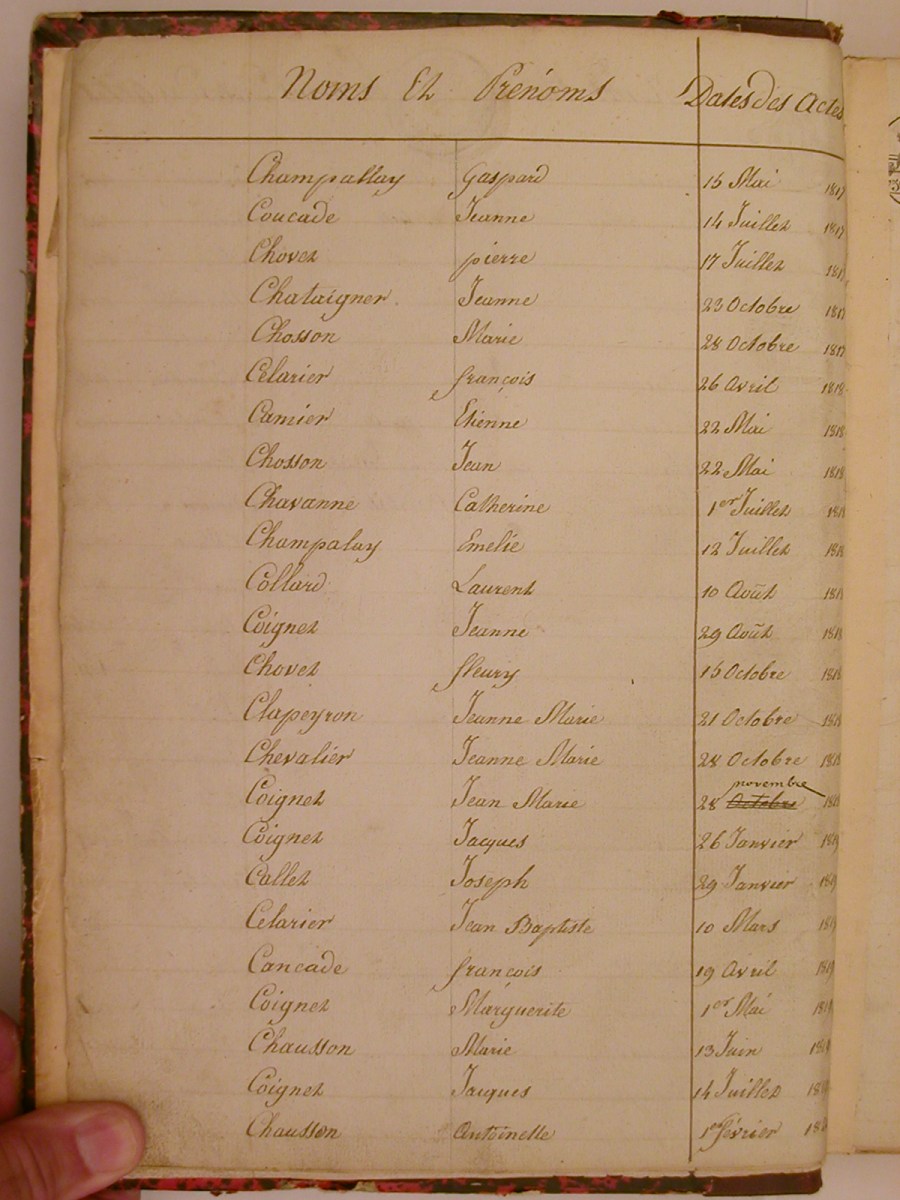 Noms Et Prénoms Dates des Actes
Champallay Gaspard 15 Mai 1817
Coucade Jeanne 14 Juillet 1817
Chovet pierre 17 Juillet 1817
Chataigner Jeanne 23 Octobre 1817
Chosson Marie 28 Octobre 1817
Celarier françois 26 Avril 1818
Camier Etienne 22 Mai 1818
Chosson Jean 22 Mai 1818
Chavanne Catherine 1er Juillet 1818
Champalay Emelie 12 Juillet 1818
Collard Laurent 10 Août 1818
Coignet Jeanne 29 Août 1818
Chovet fleury 15 Octobre 1818
Clapeyron Jeanne Marie 21 Octobre 1818
Chevalier Jeanne Marie 28 Octobre 1818
novembre
Coignet Jean Marie 28 Octobre 1818
Coignet Jacques 26 Janvier 1819
Callet Joseph 29 Janvier 1819
Celarier Jean Baptiste 10 Mars 1819
Cancade françois 19 Avril 1819
Coignet Marguerite 1er Mai 1819
Chausson Marie 13 Juin 1819
Coignet Jacques 14 Juillet
Chausson Antoinette 1er février